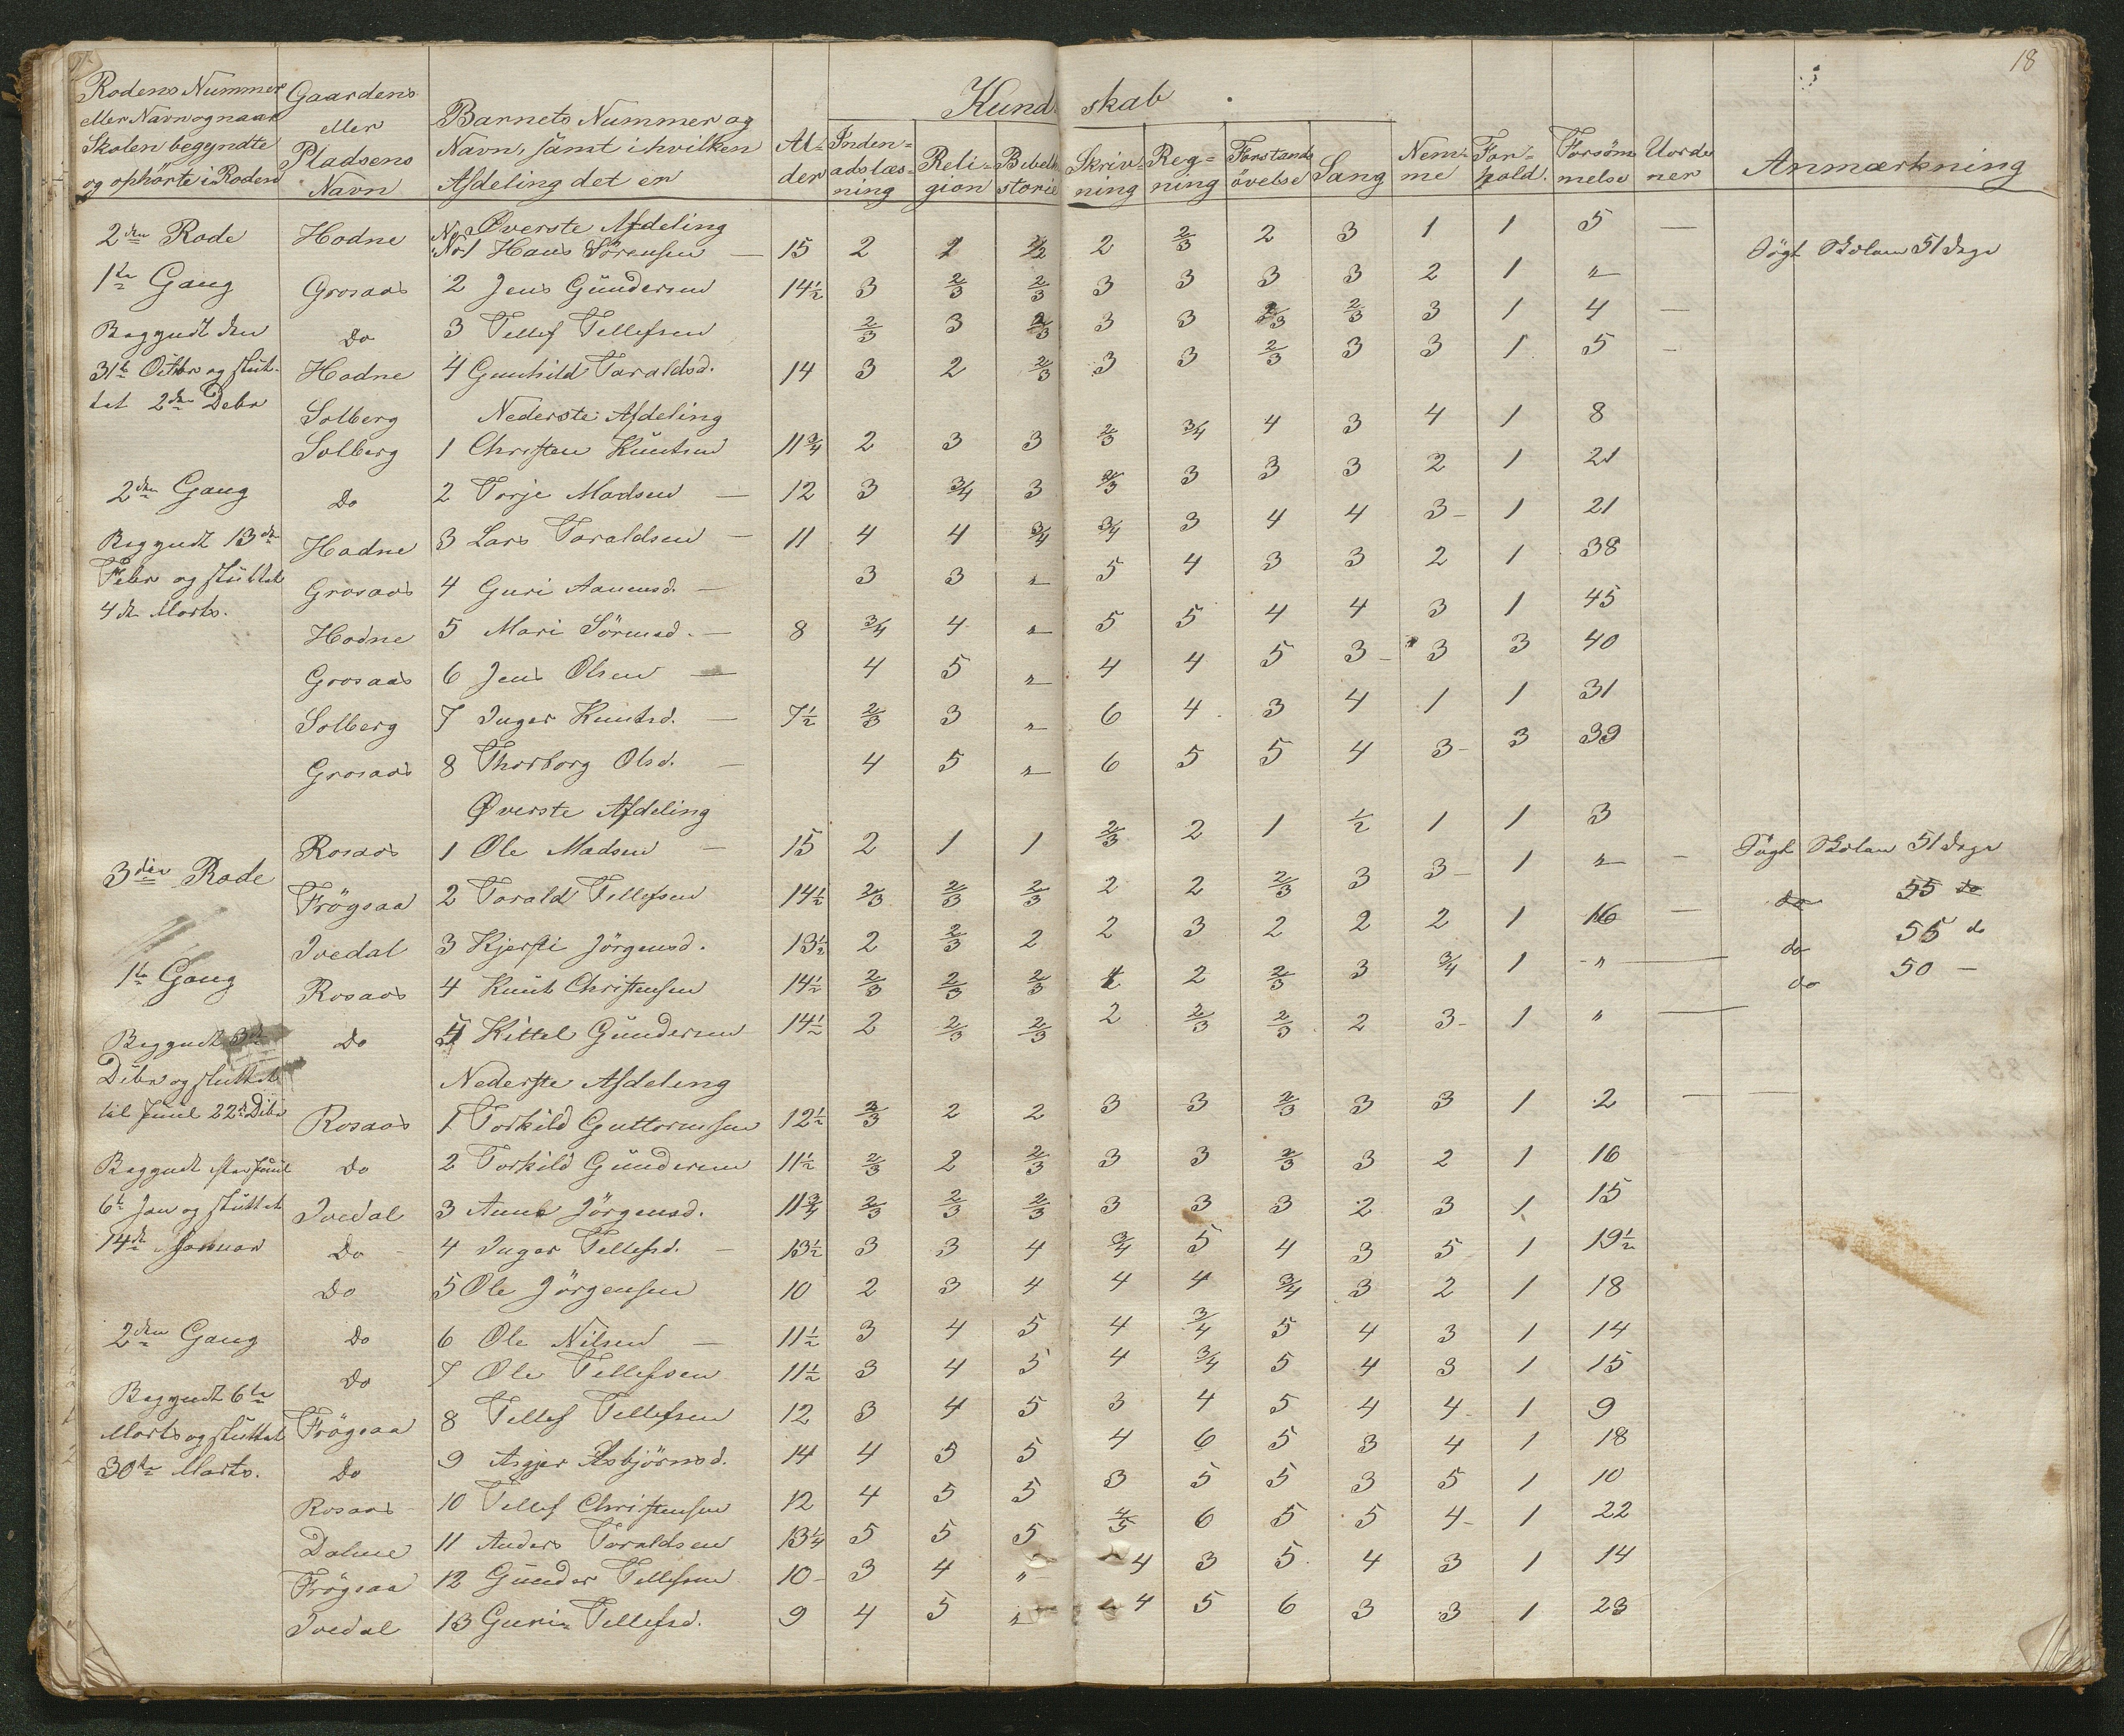 18
Rodens Nummer eller Navn og naar Skolen begyndte og ophörte i Roden | Gaardens eller Pladsens Navn | Barnets Nummer og Navn, samt i hvilken Afdeling det er | Al-der | Kundskab | Nem-me | For-hold. | Forsöm melse | Uorde ner | Anmærkning
Inden-adslæs-ning | Reli-gion | Bibelh storie | Skriv-ning | Reg-ning | Forstands övelse | Sang
Øverste Afdeling
2den Rode | Hodne | No 1 Hans Sörensen — | 15 | 2 | 2 | 1/2 | 2 | 2/3 | 2 | 3 | 1 | 1 | 5 | — | Sögt Skolen 51 Dage
1te Gang | Grosaas | 2 Jens Gündersen | 14½ | 3 | 2/3 | 2/3 | 3 | 3 | 3 | 3 | 2 | 1 | "
Begyndt den | Do | 3 Tellef Tellefsen | 2/3 | 3 | 2/3 | 3 | 3 | 2/3 | 2/3 | 3 | 1 | 4 | —
31te Octbr og slut- | Hodne | 4 Gunhild Taraldsd. | 14 | 3 | 2 | 2/3 | 3 | 3 | 2/3 | 3 | 3 | 1 | 5 | —
tet 2den Debr
Solberg | Nederste Afdeling
Solberg | 1 Christen Knutsen | 11¾ | 2 | 3 | 3 | 2/3 | 3/4 | 4 | 3 | 4 | 1 | 8
2den Gang | Do | 2 Torje Madsen — | 12 | 3 | 3/4 | 3 | 2/3 | 3 | 3 | 3 | 2 | 1 | 21
Begyndt 13de | Hodne | 3 Lars Taraldsen — | 11 | 4 | 4 | 3/4 | 3/4 | 3 | 4 | 4 | 3 | 1 | 21
Febr og sluttet | Grosaas | 4 Guri Aanensd. — | 3 | 3 | " | 5 | 4 | 3 | 3 | 2 | 1 | 38
4de Marts. | Hodne | 5 Mari Sörensd. — | 8 | 3/4 | 4 | " | 5 | 5 | 4 | 4 | 3 | 1 | 45
Grosaas | 6 Jens Olsen — | 4 | 5 | " | 4 | 4 | 5 | 3 | 3 | 3 | 40
Solberg | 7 Inger Knutsd. — | 7½ | 2/3 | 3 | " | 6 | 4 | 3 | 4 | 1 | 1 | 31
Grosaas | 8 Thorborg Olsd. — | 4 | 5 | " | 6 | 5 | 5 | 4 | 3 | 3 | 39
Øverste Afdeling
3die Rode | Rosaas | 1 Ole Madsen — | 15 | 2 | 1 | 1 | 2/3 | 2 | 1 | 1/2 | 1 | 1 | 3 | Sögt Skolen 51 Dage
Frögsaa | 2 Tarald Tellefsen | 14½ | 2/3 | 2/3 | 2/3 | 2 | 2 | 2/3 | 3 | 3 | 1 | " | — | do 55 do
Ivedal | 3 Kjersti Jörgensd. | 13½ | 2 | 2/3 | 2 | 2 | 3 | 2 | 2 | 2 | 1 | 16 | — | do 55 do
1te Gang | Rosaas | 4 Knut Christensen | 14½ | 2/3 | 2/3 | 2/3 | 2 | 2/3 | 3 | 3/4 | 1 | " | — | do 50 —
Begyndt | Do | 5 Kittel Gündersen | 14½ | 2 | 2/3 | 2/3 | 2 | 2/3 | 2/3 | 2 | 3 | 1 | " | —
Debr og sluttet | Nederste Afdeling
til Juul 22de Debr | Rosaas | 1 Torkild Guttormsen | 12½ | 2/3 | 2 | 2 | 3 | 3 | 2/3 | 3 | 3 | 1 | 2 | —
Begyndt efter Juul | Do | 2 Torkild Gündersen | 11½ | 2/3 | 2 | 2/3 | 3 | 3 | 2/3 | 3 | 2 | 1 | 16
6te Jan og sluttet | Ivedal | 3 Anne Jörgensd. | 11¾ | 2/3 | 2/3 | 2/3 | 3 | 3 | 3 | 2 | 3 | 1 | 15
14de Januar | Do | 4 Inger Tellefsd. — | 13½ | 3 | 3 | 4 | 3/4 | 5 | 4 | 3 | 5 | 1 | 19½
Do | 5 Ole Jörgensen | 10 | 2 | 3 | 4 | 4 | 4 | 3/4 | 3 | 2 | 1 | 18
2den Gang | Do | 6 Ole Nilsen — | 11½ | 3 | 4 | 5 | 4 | 3/4 | 5 | 4 | 3 | 1 | 14
Do | 7 Ole Tellefsen | 11½ | 3 | 4 | 5 | 4 | 3/4 | 5 | 4 | 3 | 1 | 15
Begyndt 6te
Marts og sluttet | Frögsaa | 8 Tellef Tellefsen | 12 | 3 | 4 | 5 | 3 | 4 | 5 | 4 | 4 | 1 | 9
30te Marts. | Do | 9 Asgjer Asbjörnsd. | 14 | 4 | 5 | 5 | 4 | 6 | 5 | 3 | 4 | 1 | 18
Rosaas | 10 Tellef Christensen | 12 | 4 | 5 | 5 | 3 | 5 | 5 | 3 | 5 | 1 | 10
Dalene | 11 Anders Taraldsen | 13¼ | 5 | 5 | 5 | 4/5 | 6 | 5 | 5 | 4 | 1 | 22
Frögsaa | 12 Günder Tellefsen | 10 | 3 | 4 | " | 4 | 3 | 5 | 4 | 3 | 1 | 14
Ivedal | 13 Guri Tellefsd. | 9 | 4 | 5 | " | 4 | 5 | 6 | 3 | 3 | 1 | 23